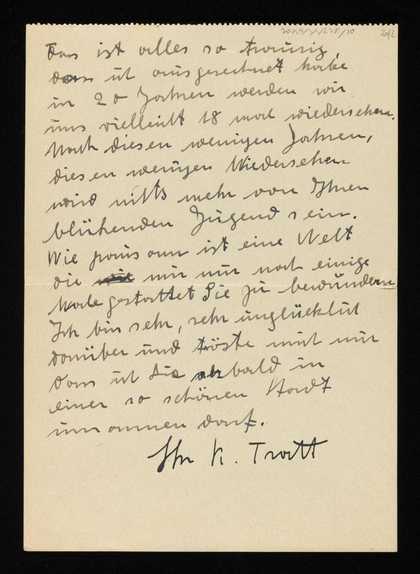 Das ist alles so traurig,
dass ich ausgerechnet habe
in 20 Jahren werden wir
uns vielleicht 18 mal wiedersehen.
Nach diesen wenigen Jahren,
diesen wenigen Wiedersehen
wird nichts mehr von Ihrer
blühenden Jugend sein.
Wie grausam ist eine Welt
die mir nur noch einige
Male gestattet Sie zu bewundern
Ich bin sehr, sehr unglücklich
darüber und tröste mich nur
dass ich Sie bald in
einer so schönen Stadt
umarmen darf.
Ihr K.